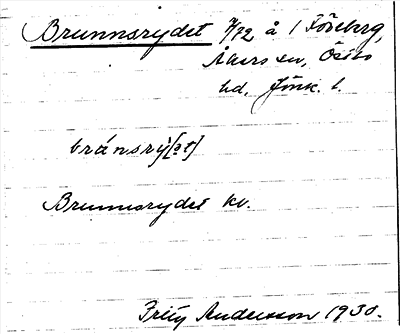 Brunnsrydet 7/72 å 1 Föreberg,
Åkers sn, Östbo
hd, Jönk. l.
bránsrỳ[ət]
Brunnsrydet kv.
Fritz Andersson 1930.